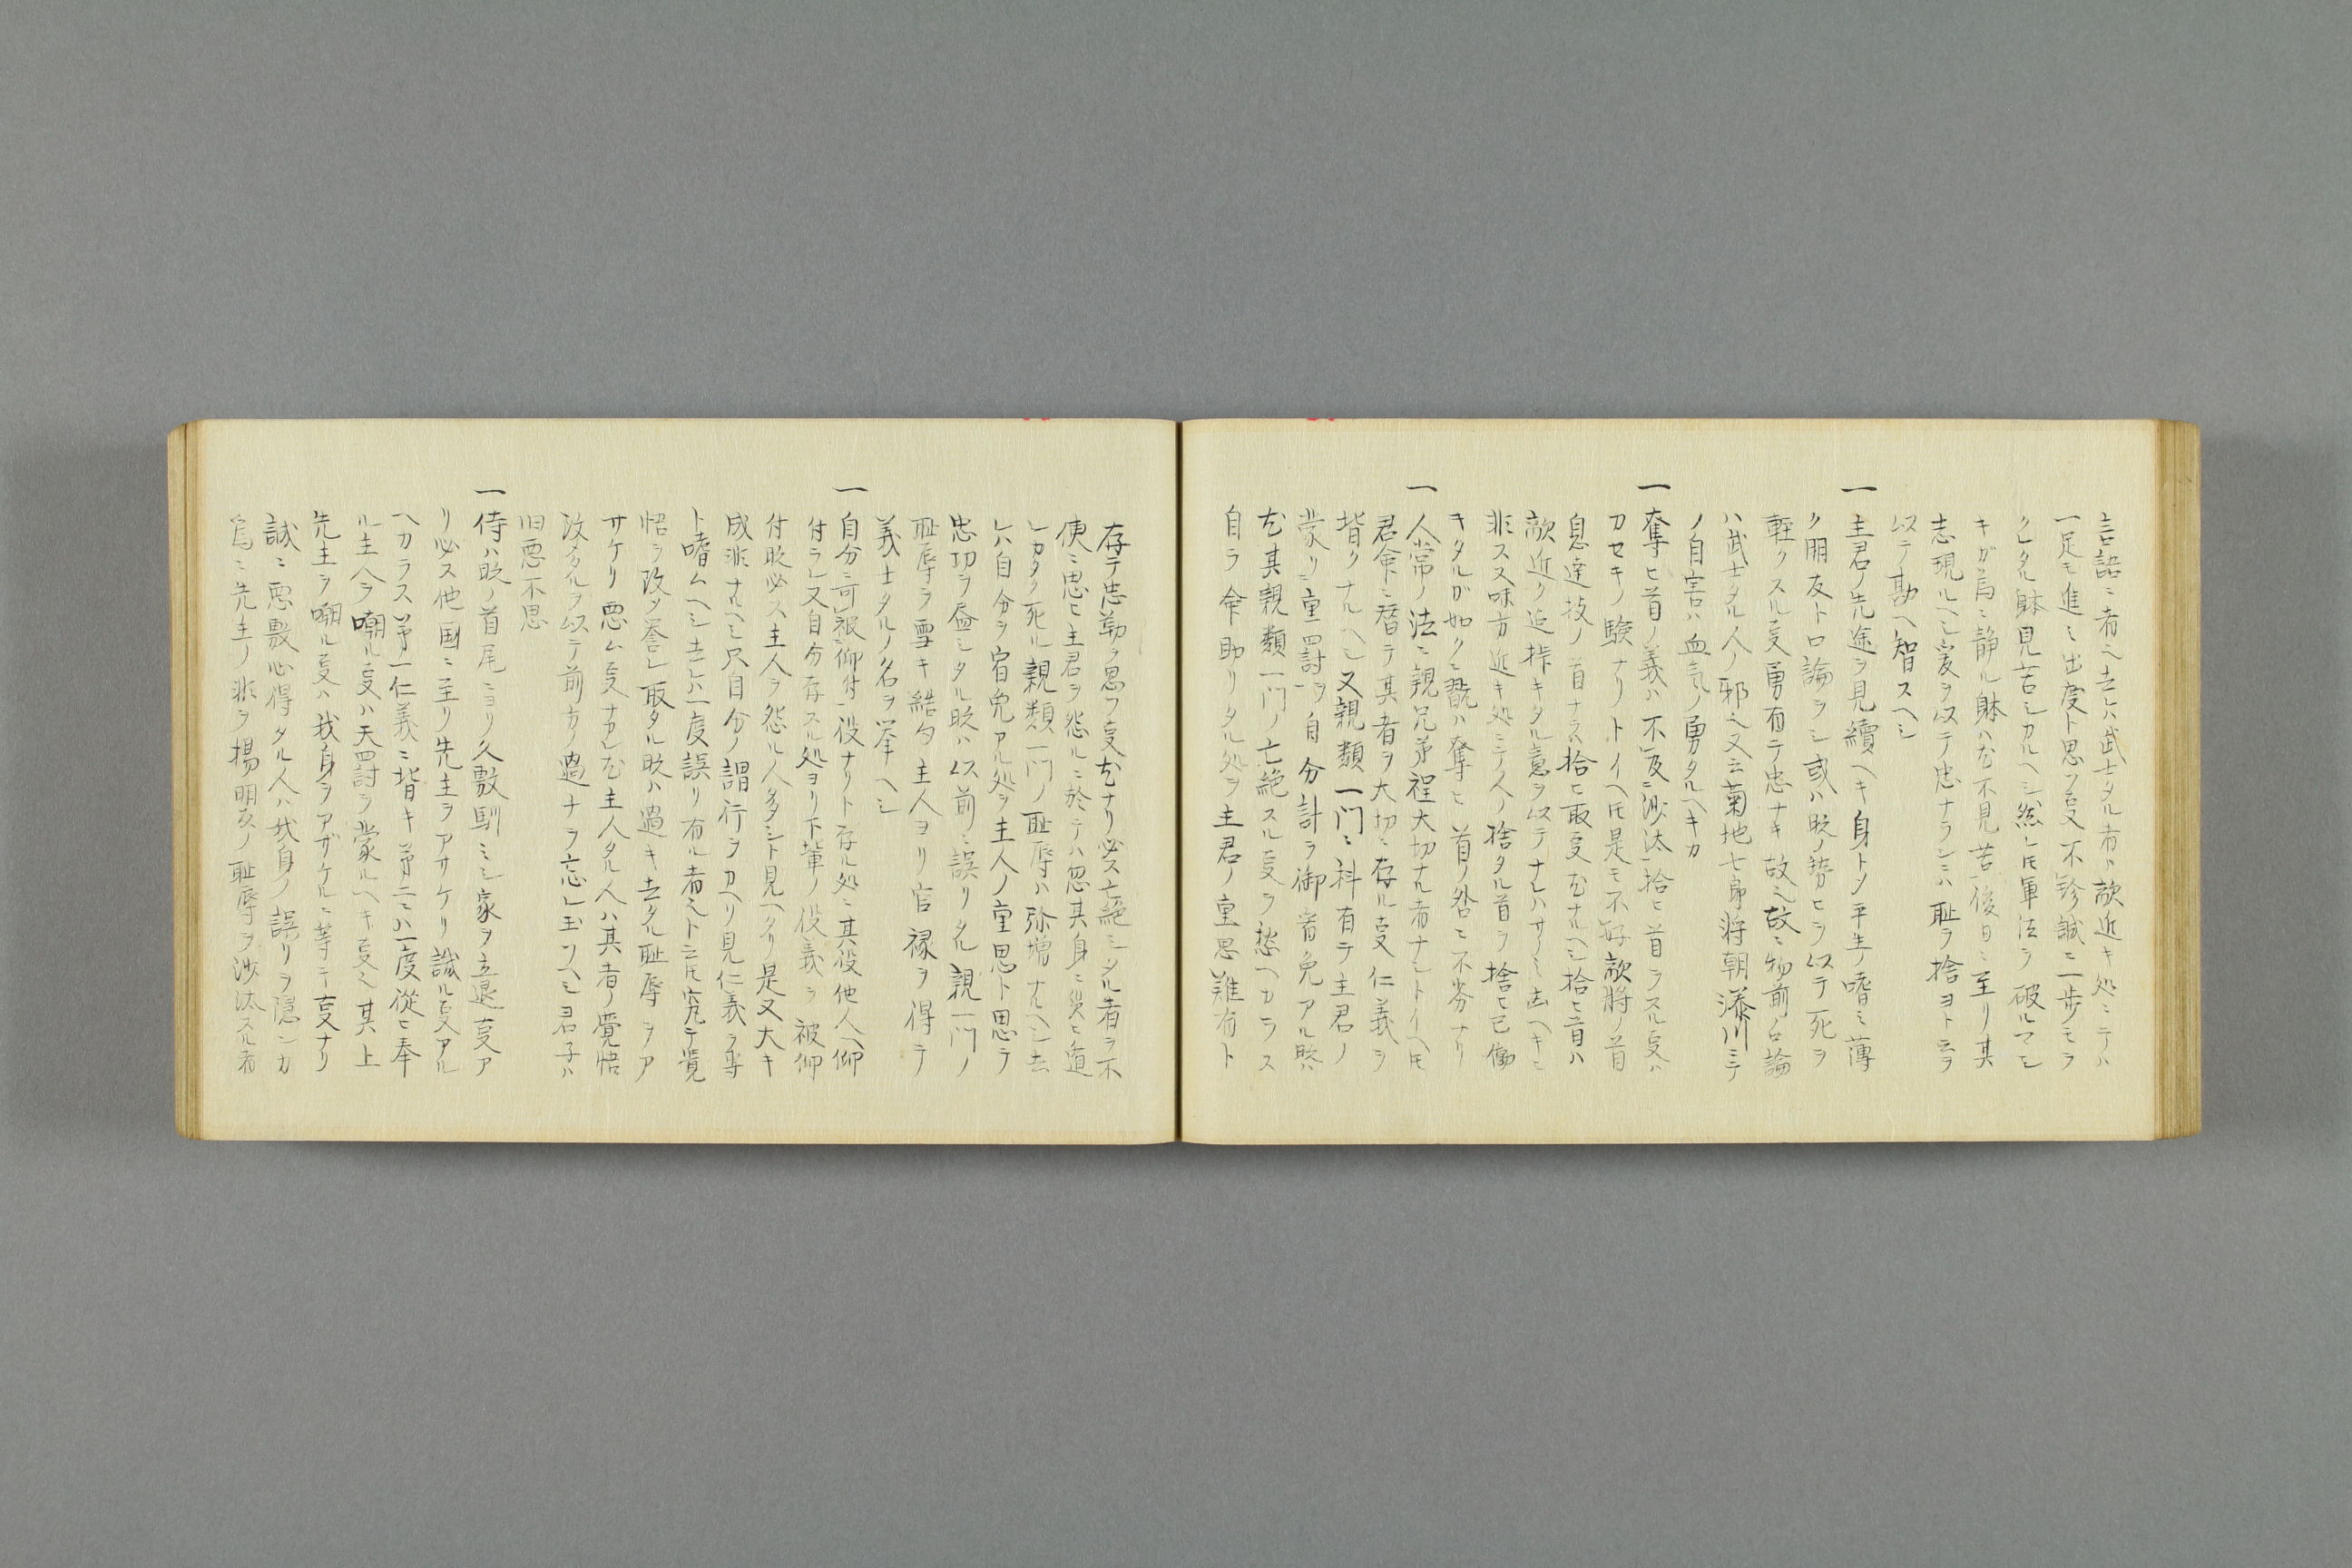 言語ニ者ヘ去レハ武士タル者ハ敵近キ処ミテハ
一足モ進ミ出度ト思フ事不珍誠ニ一歩モヲ
クヒタル躰見苦シカルヘシ然レ𪜈軍法ヲ破ルマシ
キガ為ニ静ル躰ハ尤不見苦後日ニ至リ其
志現ルヘシ爰ヲ以テ忠ナランニハ恥ヲ捨ヨト云ヲ
以テ勘ヘ智スヘシ
一主君ノ先途ヲ見續ヘキ身トメ平生ノ嗜ミ薄
ク朋友ト口論ヲシ或ハ時ノ勢ヒヲ以テ死ヲ
軽クスル事勇有テ忠ナキ故也故ニ物前ノ口論
ハ武士タル人ノ邪也又云菊地七郎将朝漆川ニテ
ノ自害ハ血気ノ勇タルヘキカ
一奪ヒ首ノ義ハ不及沙汰拾ヒ首ヲスル事ハ
カセキノ験ナリトイヘ𪜈是モ不好敵将ノ首
息達技ノ首ナラス拾ヒ取事尤ナルヘシ拾ヒ首ハ
敵近ク追捨キタル意ヲ以テナレハサノミ去ヘキニ
非ス又味方近キ処ニテ人ノ捨タル首ヲ捨ヒ己働
キタルガ如クニ翫ハ奪ヒ首ノ咎ニ不劣ナリ
一人常ノ法ニ親兄弟程大切ナル者ナシトイヘ𪜈
君命ニ替テ其者ヲ大切ニ存ル事仁義ヲ
背クナルヘシ又親類一門ニ科有テ主君ノ
蒙リ重罰ヲ自分計ヲ御宥免アル時ハ
尤其親類一門ノ亡絶スル事ヲ愁ヘカラス
自ラ命助リタル処ヲ主君ノ重恩難有ト
存テ忠勤ヲ思フ事尤ナリ必ス亡絶シタル者ヲ不
便ニ思ヒ主君ヲ怨ルニ於テハ忽其身ニ災ヒ遁
レカタク死ル親類一門ノ恥辱ハ弥増ナルヘシ去
レハ自分ヲ宥免アル処ヲ主人ノ重恩ト思テ
忠功ヲ盡シタル時ハ以前ニ誤リタル親一門ノ
恥辱ヲ雪キ結句主人ヨリ官禄ヲ得テ
義士タルノ名ヲ挙ヘシ
一自分ニ可被仰付役ナリト存ル処ニ其役他人ヘ仰
付ラレ又自分存スル処ヨリ下輩ノ役義ヲ被仰
付時必ス主人ヲ怨ル人多シト見ヘタリ是又大キ
成非ナルヘシ只自分ノ謂行ヲカヘリ見仁義ヲ専
ト嗜ムヘシ去レハ一度誤リ有ル者也ト云𪜈究テ覚
悟ヲ改メ誉レ取タル時ハ過キ去タル恥辱ヲア
サケリ悪ム事ナカレ尤主人タル人ハ其者ノ覚悟
改タルヲ以テ前方ノ過ナヲ忘レ玉フヘシ君子ハ
旧悪不思
一侍ハ時ノ首尾ニヨリ久敷馴ミシ家ヲ立退事ア
リ必ス他国ニ至リ先主ヲアサケリ誠ル事アル
ヘカラス第一仁義ニ背キ第二ニハ一度従ヒ奉
ル主人ヲ嘲ル事ハ天罰ヲ蒙ルヘキ事也其上
先主ヲ嘲ル事ハ我身ヲアザケルニ等テ事ナリ
誠ニ悪敷心得タル人ハ我身ノ誤リヲ隠シカ
為ニ先主ノ非ヲ揚明友ノ恥辱ヲ沙汰スル者